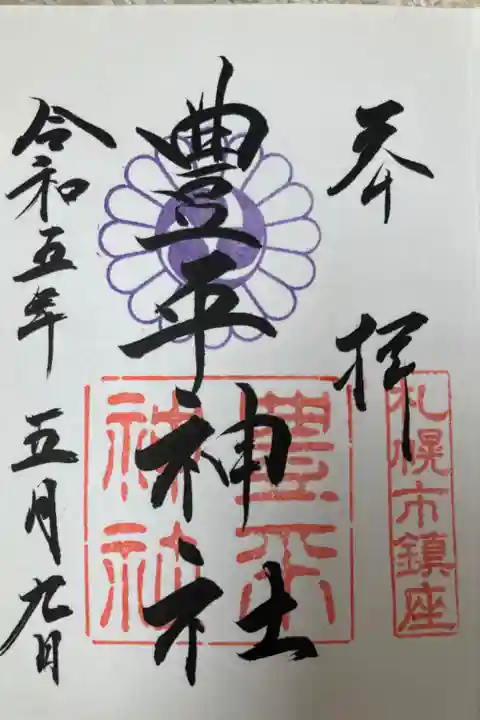 奉拝
札幌市鎮座
豊平神社
豊平神社
令和五年五月九日